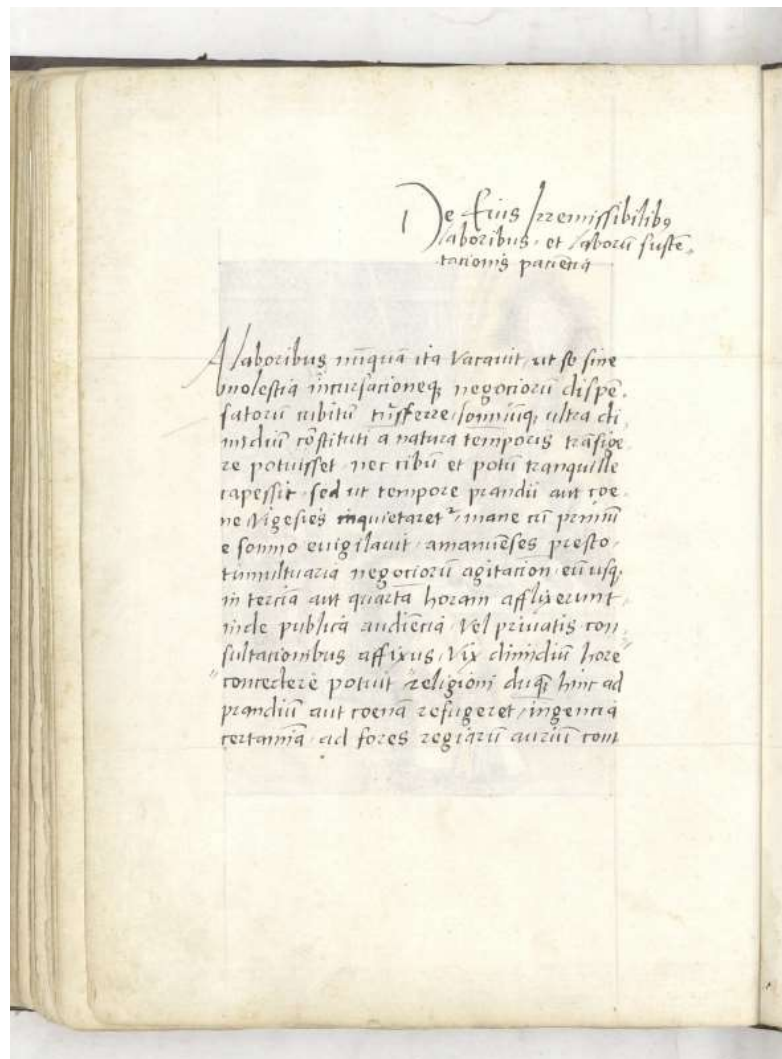 De Eius Irremissibilibꝯ
laboribus, et laborū sustē-
tacionis paciētia
A laboribus nūquā ita vacavit, ut se sine
molestia incursacioneqꝫ negociorū dispē-
satorū cubitū trāsferre, somnūqꝫ ultra di
midiū cōstituti a natura temporis trāsige-
re potuisset, nec cibū et potū tranquille
capessit, sed ut tempore prandii aut coe-
ne vigesies inquietaretᷣ, mane cū primū
e somno evigilavit, amanuēses presto,
tumultuaria negociorū agitacion eū usqꝫ
in terciā aut quartā horam afflixerunt,
inde publica audiēcia, vel privatis con-
sultacionibus affixus, vix dimidiū hore
concedere potuit religioni, duqꝫ hinc ad
prandiū aut coenā refugeret, ingencia
certamīa, ad fores regiarū auriū com